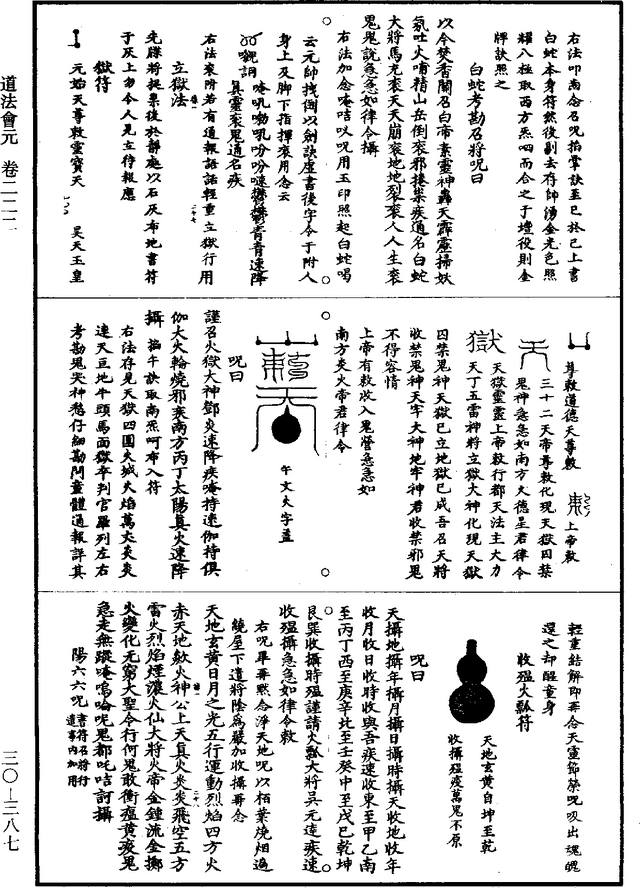 道法會元 卷二二二
右法叩南念召呪掐掌訣至巳於己上書
白蛇本身符然後剔去存師湧金光色照
輝八極取西方炁呬而合之于壇役則金
牌訣照之
白蛇考勘召將呪曰
以今焚香關召白帝素靈神轟天霹靂掃妖
氛吐火噴精山岳倒衮邪捲祟疾通名白蛇
大將馬充衮天天崩衮地地裂衮人人生衮
鬼鬼說急急如律令攝
右法加念唵咭叹呪用玉印照起白蛇喝
云元帥拽倒以劍訣虛書後字令于附人
身上及脚下指揮衮用念云
真靈衮鬼通名疾
右法衮附若有通報語話輕重立獄行用
立獄法
先牒將捉祟後於靜處以石灰布地書符
于灰上勿令人見立待報應
獄符
元始天尊敕靈寶天
昊天玉皇
尊敕道德天尊敕
上帝敕
三十二天帝尊敕化現天獄囚禁
鬼神急急如南方火德星君律令
天獄靈靈上帝敕行都天法主大力
天丁五雷神將立獄大神化現天獄
囚禁鬼神天獄已立地獄已成吾召天將
收禁鬼神天牢大神地牢神君收禁邪鬼
不得容情
上帝有敕收入鬼營急急如
南方炎火帝君律令
午文火字蓋
呪曰
謹召火獄大神鄧炎速降疾唵持速伽持俱
伽大火輪燒邪衮南方丙丁太陽真火速降
攝 掐午訣取南炁呵布入符
右法存見天獄四圍火城火焰萬丈炎炎
連天亘地牛頭馬面獄卒判官羅列左右
考勘鬼哭神愁仔細勘問童體通報詳其
輕重結解即再念天靈節榮呪吸出魂魄
還之却醒童身
收瘟火瓢符
天地玄黃自坤至乾
收攝瘟疫萬鬼不原
呪曰
天攝地攝年攝月攝日攝時攝天收地收年
收月收日收時收與吾疾速收東至甲乙南
至丙丁西至庚辛北至壬癸中至戊己乾坤
艮巽收攝時瘟謹請火瓢大將吳元遠疾速
收瘟攝急急如律令敕
右呪畢再默念淨天地呪以柏葉燒烟遍
繞屋下遣將陰為嚴加收攝再念
天地玄黃日月之光五行運動烈焰四方火
赤天地歘火神公上天真火炎炎飛空五方
雷火烈焰煙濃火仙大將火帝金鍾流金擲
火變化无窮大聖令行何鬼敢衝瘟黃疫鬼
急走無蹤唵嗚哈呢鬼都吒咭訶攝
陽六六呪 書符召將行道事內加用
三〇—三八七